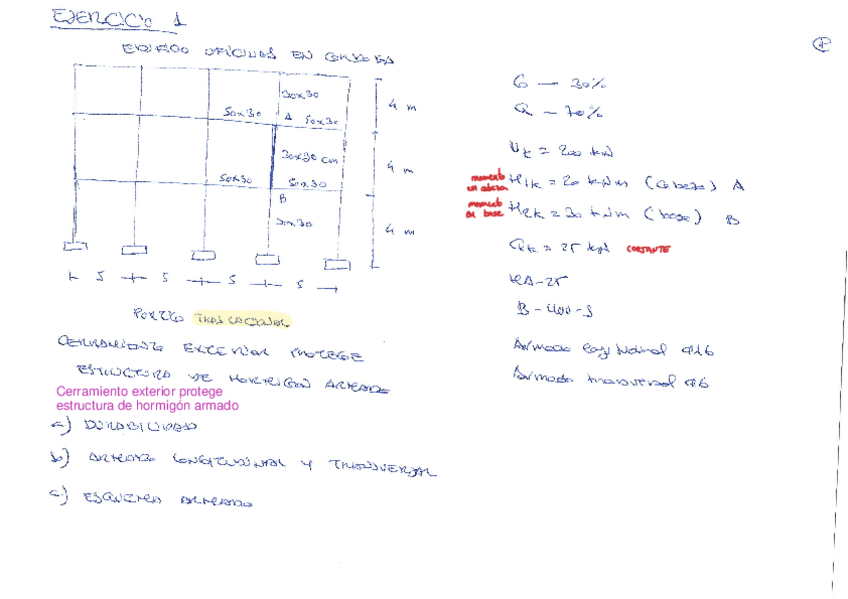 EJERCICIO 1
EDIFICIO OFICINAS EN CORDOBA
30x30
50x30 A 50x30
30x30 cm
50x30 50x30
B
30x30
4 m
4 m
4 m
5 5 5 5
PORTICO TRASLACIONAL
CERRAMIENTO EXTERIOR PROTEGE
ESTRUCTURA DE HORMIGON ARMADO
Cerramiento exterior protege
estructura de hormigón armado
a) DURABILIDAD
b) ARMADO LONGITUDINAL Y TRANSVERSAL
c) ESQUEMA ARMADO
G — 30%
Q — 70%
Nk = 200 kN
momento en cabeza M1k = 20 kNm (Cabeza) A
momento en base M2k = 30 kNm (base) B
Qk = 25 kN CORTANTE
HA-25
B-400-S
Armado longitudinal φ16
Armado transversal φ6